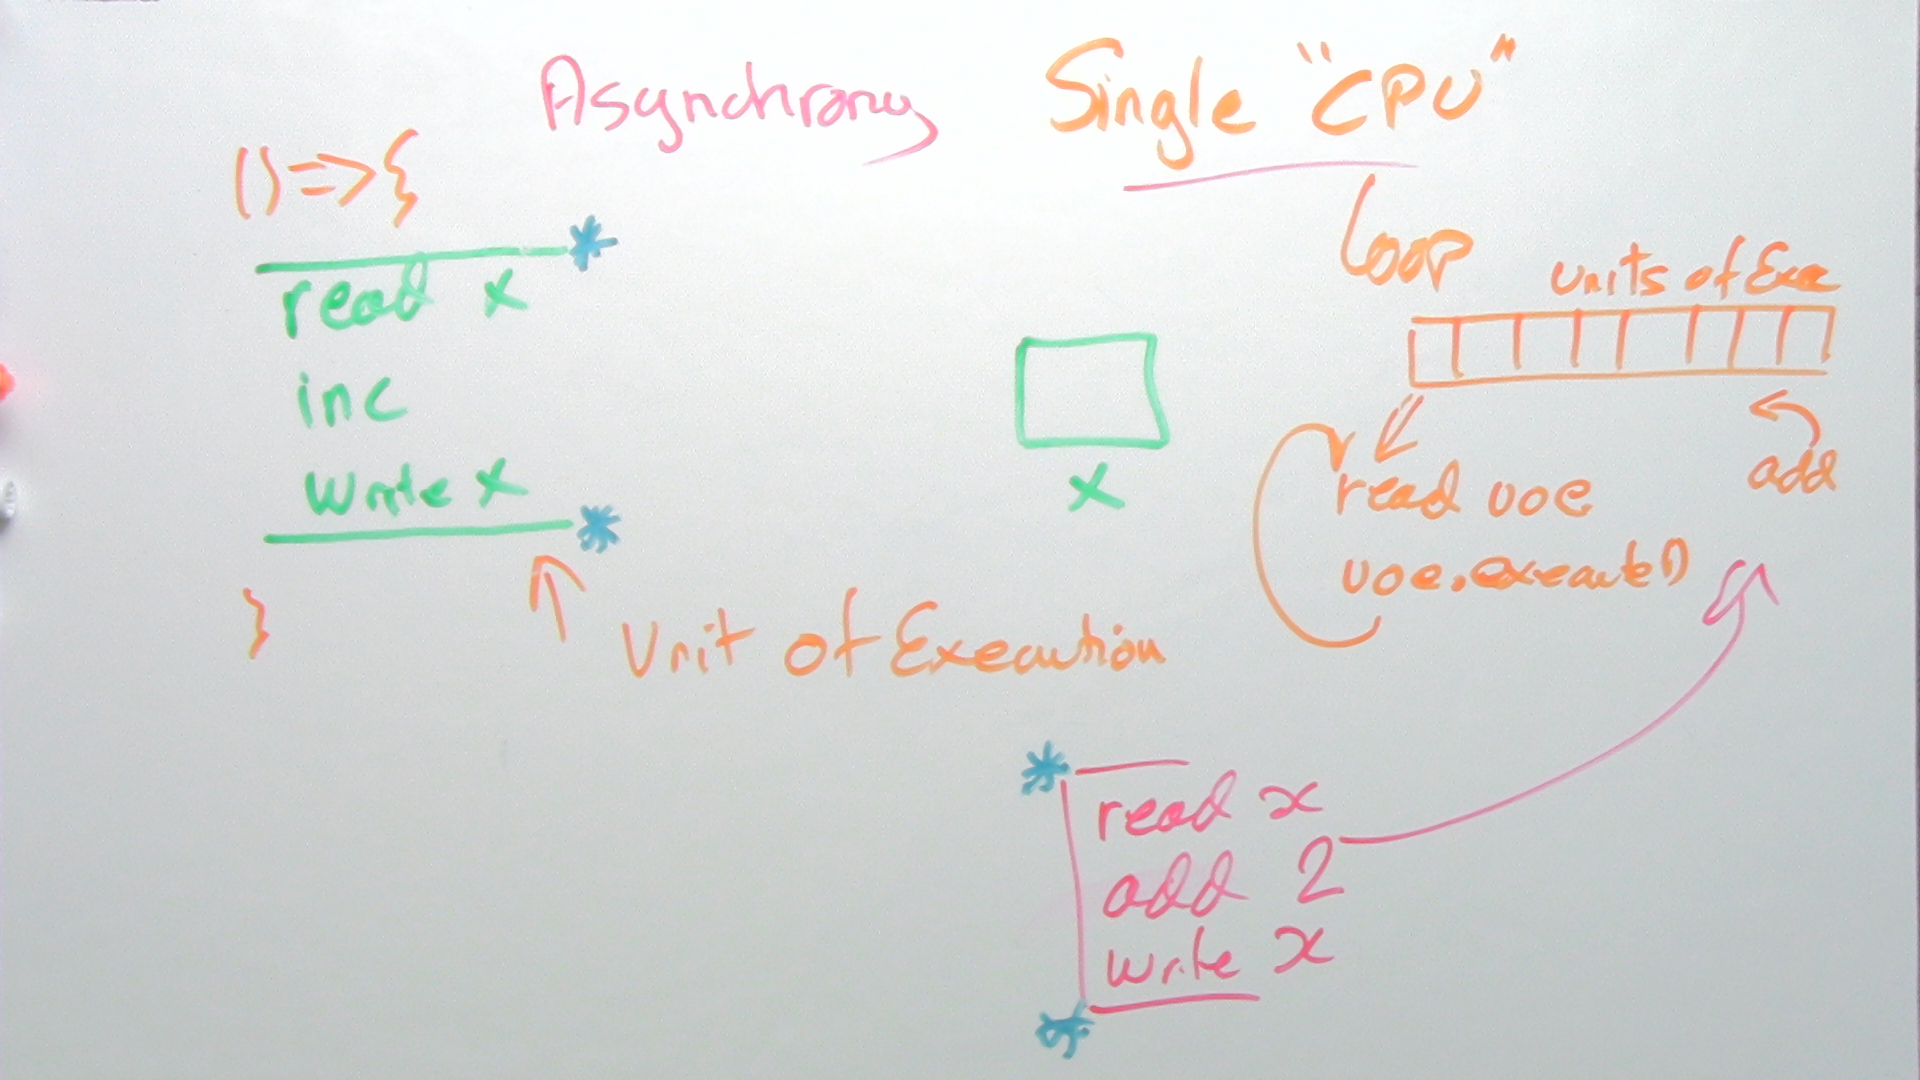 Asynchrony Single "CPU"
() => {
read x
inc
write x
}
Unit of Execution
x
Loop
units of Exe
add
read uoe
uoe.execute()
read x
add 2
write x